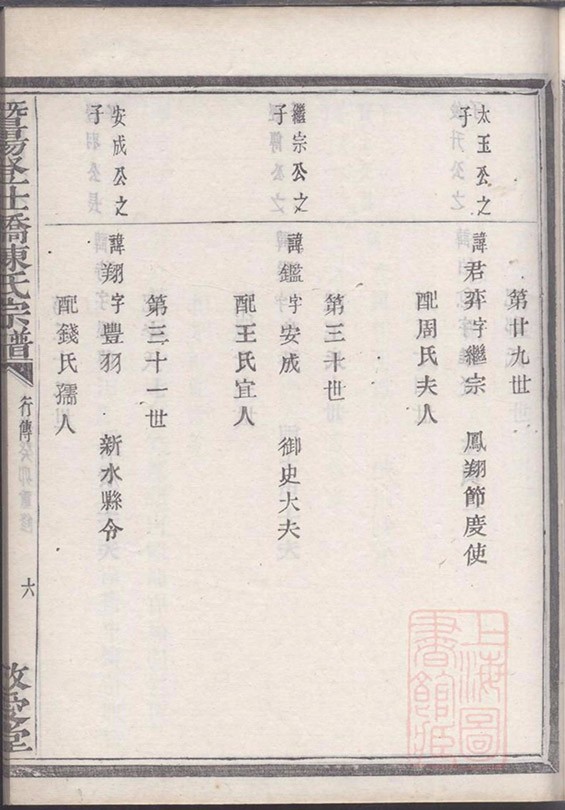 第廿九世
太玉公之
子
諱君弈字繼宗 鳳翔節度使
配周氏夫人
第三十世
繼宗公之
子
諱鑑字安成 御史大夫
配王氏宜人
第三十一世
安成公之
子
諱翔字豐羽 新水縣令
配錢氏孺人
橋陳氏宗譜
行傳
六
上海圖
書館藏